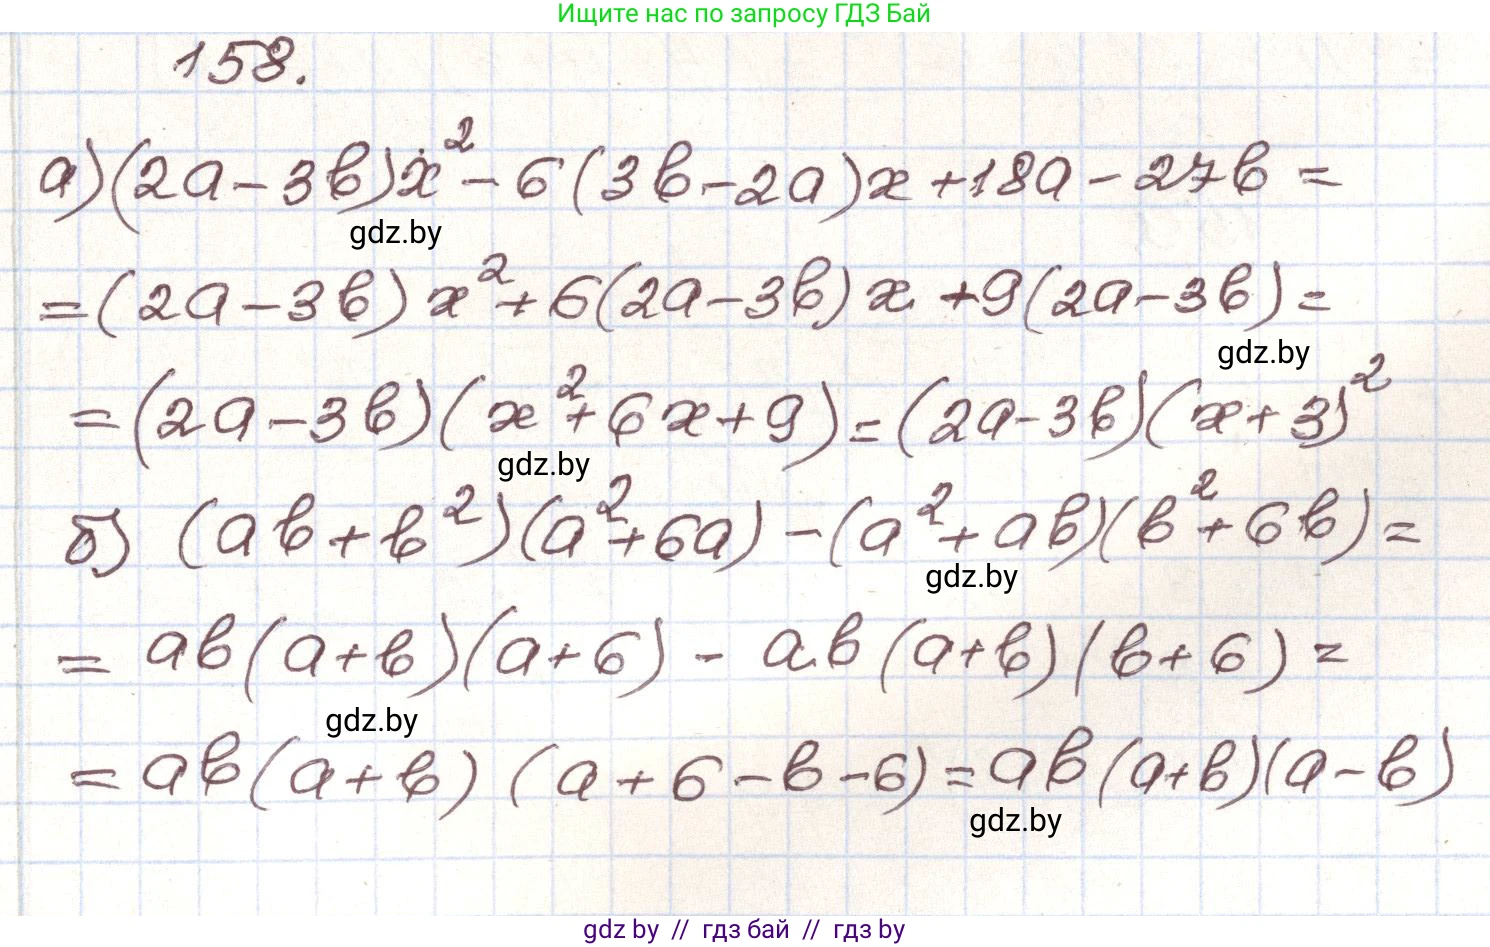 Ищите нас по запросу ГДЗ Бай
158.
а) (2a-3b)x²-6(3b-2a)x+18a-27b=
gdz.by
=(2a-3b)x²+6(2a-3b)x+9(2a-3b)=
gdz.by
=(2a-3b)(x²+6x+9)=(2a-3b)(x+3)²
gdz.by
б) (ab+b²)(a²+6a)-(a²+ab)(b²+6b)=
gdz.by
=ab(a+b)(a+6)-ab(a+b)(b+6)=
gdz.by
=ab(a+b)(a+6-b-6)=ab(a+b)(a-b)
gdz.by
gdz by // гдз бай // гдз by